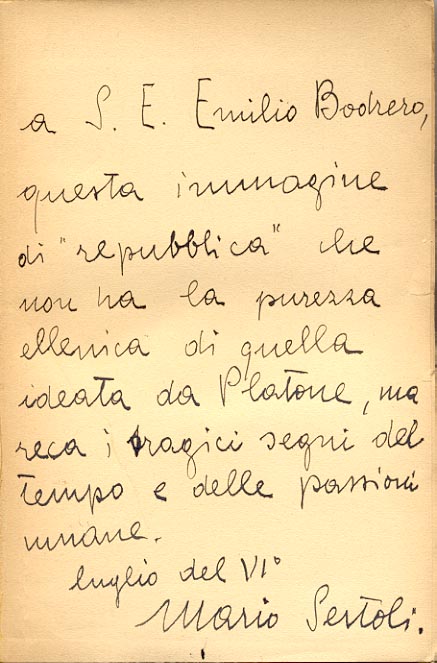 a S. E. Emilio Bodrero,
questa immagine
di "repubblica" che
non ha la purezza
ellenica di quella
ideata da Platone, ma
reca i tragici segni del
tempo e delle passioni
umane.
luglio del VIº
Mario Sertoli.